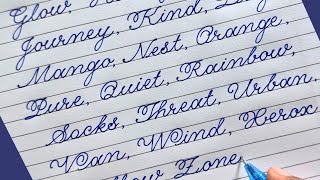 Glow,
Journey, Kind,
Mango, Nest, Orange,
Pure, Quiet, Rainbow,
Socks, Threat, Urban,
Van, Wind, Xerox
Zone